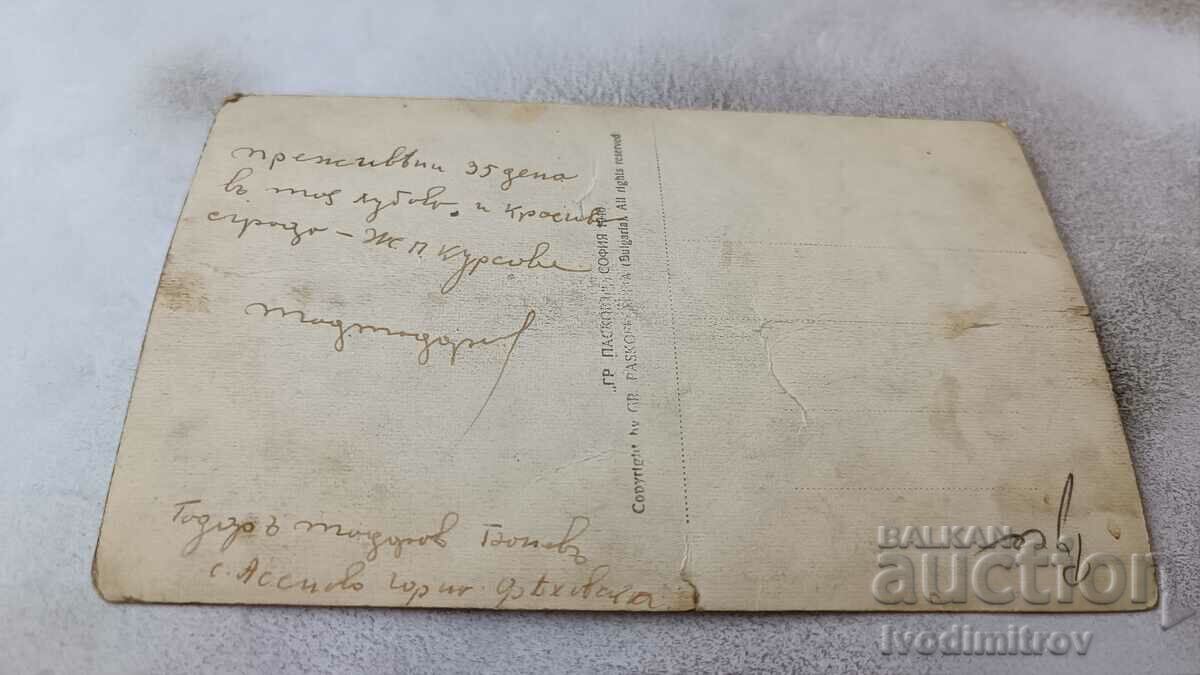 преживѣни 35 дена
въ тоя хубово и красиво
сграда - Ж П Курсове
Тодтодоров
Тодоръ Тодоров Боневъ
с. Ассеново горно Орѣховска
"ГР ПАСКОВ" СОФИЯ
Copyright by GR. PASKOV (Bulgaria). All rights reserved
BALKAN
auction
Ivodimitrov